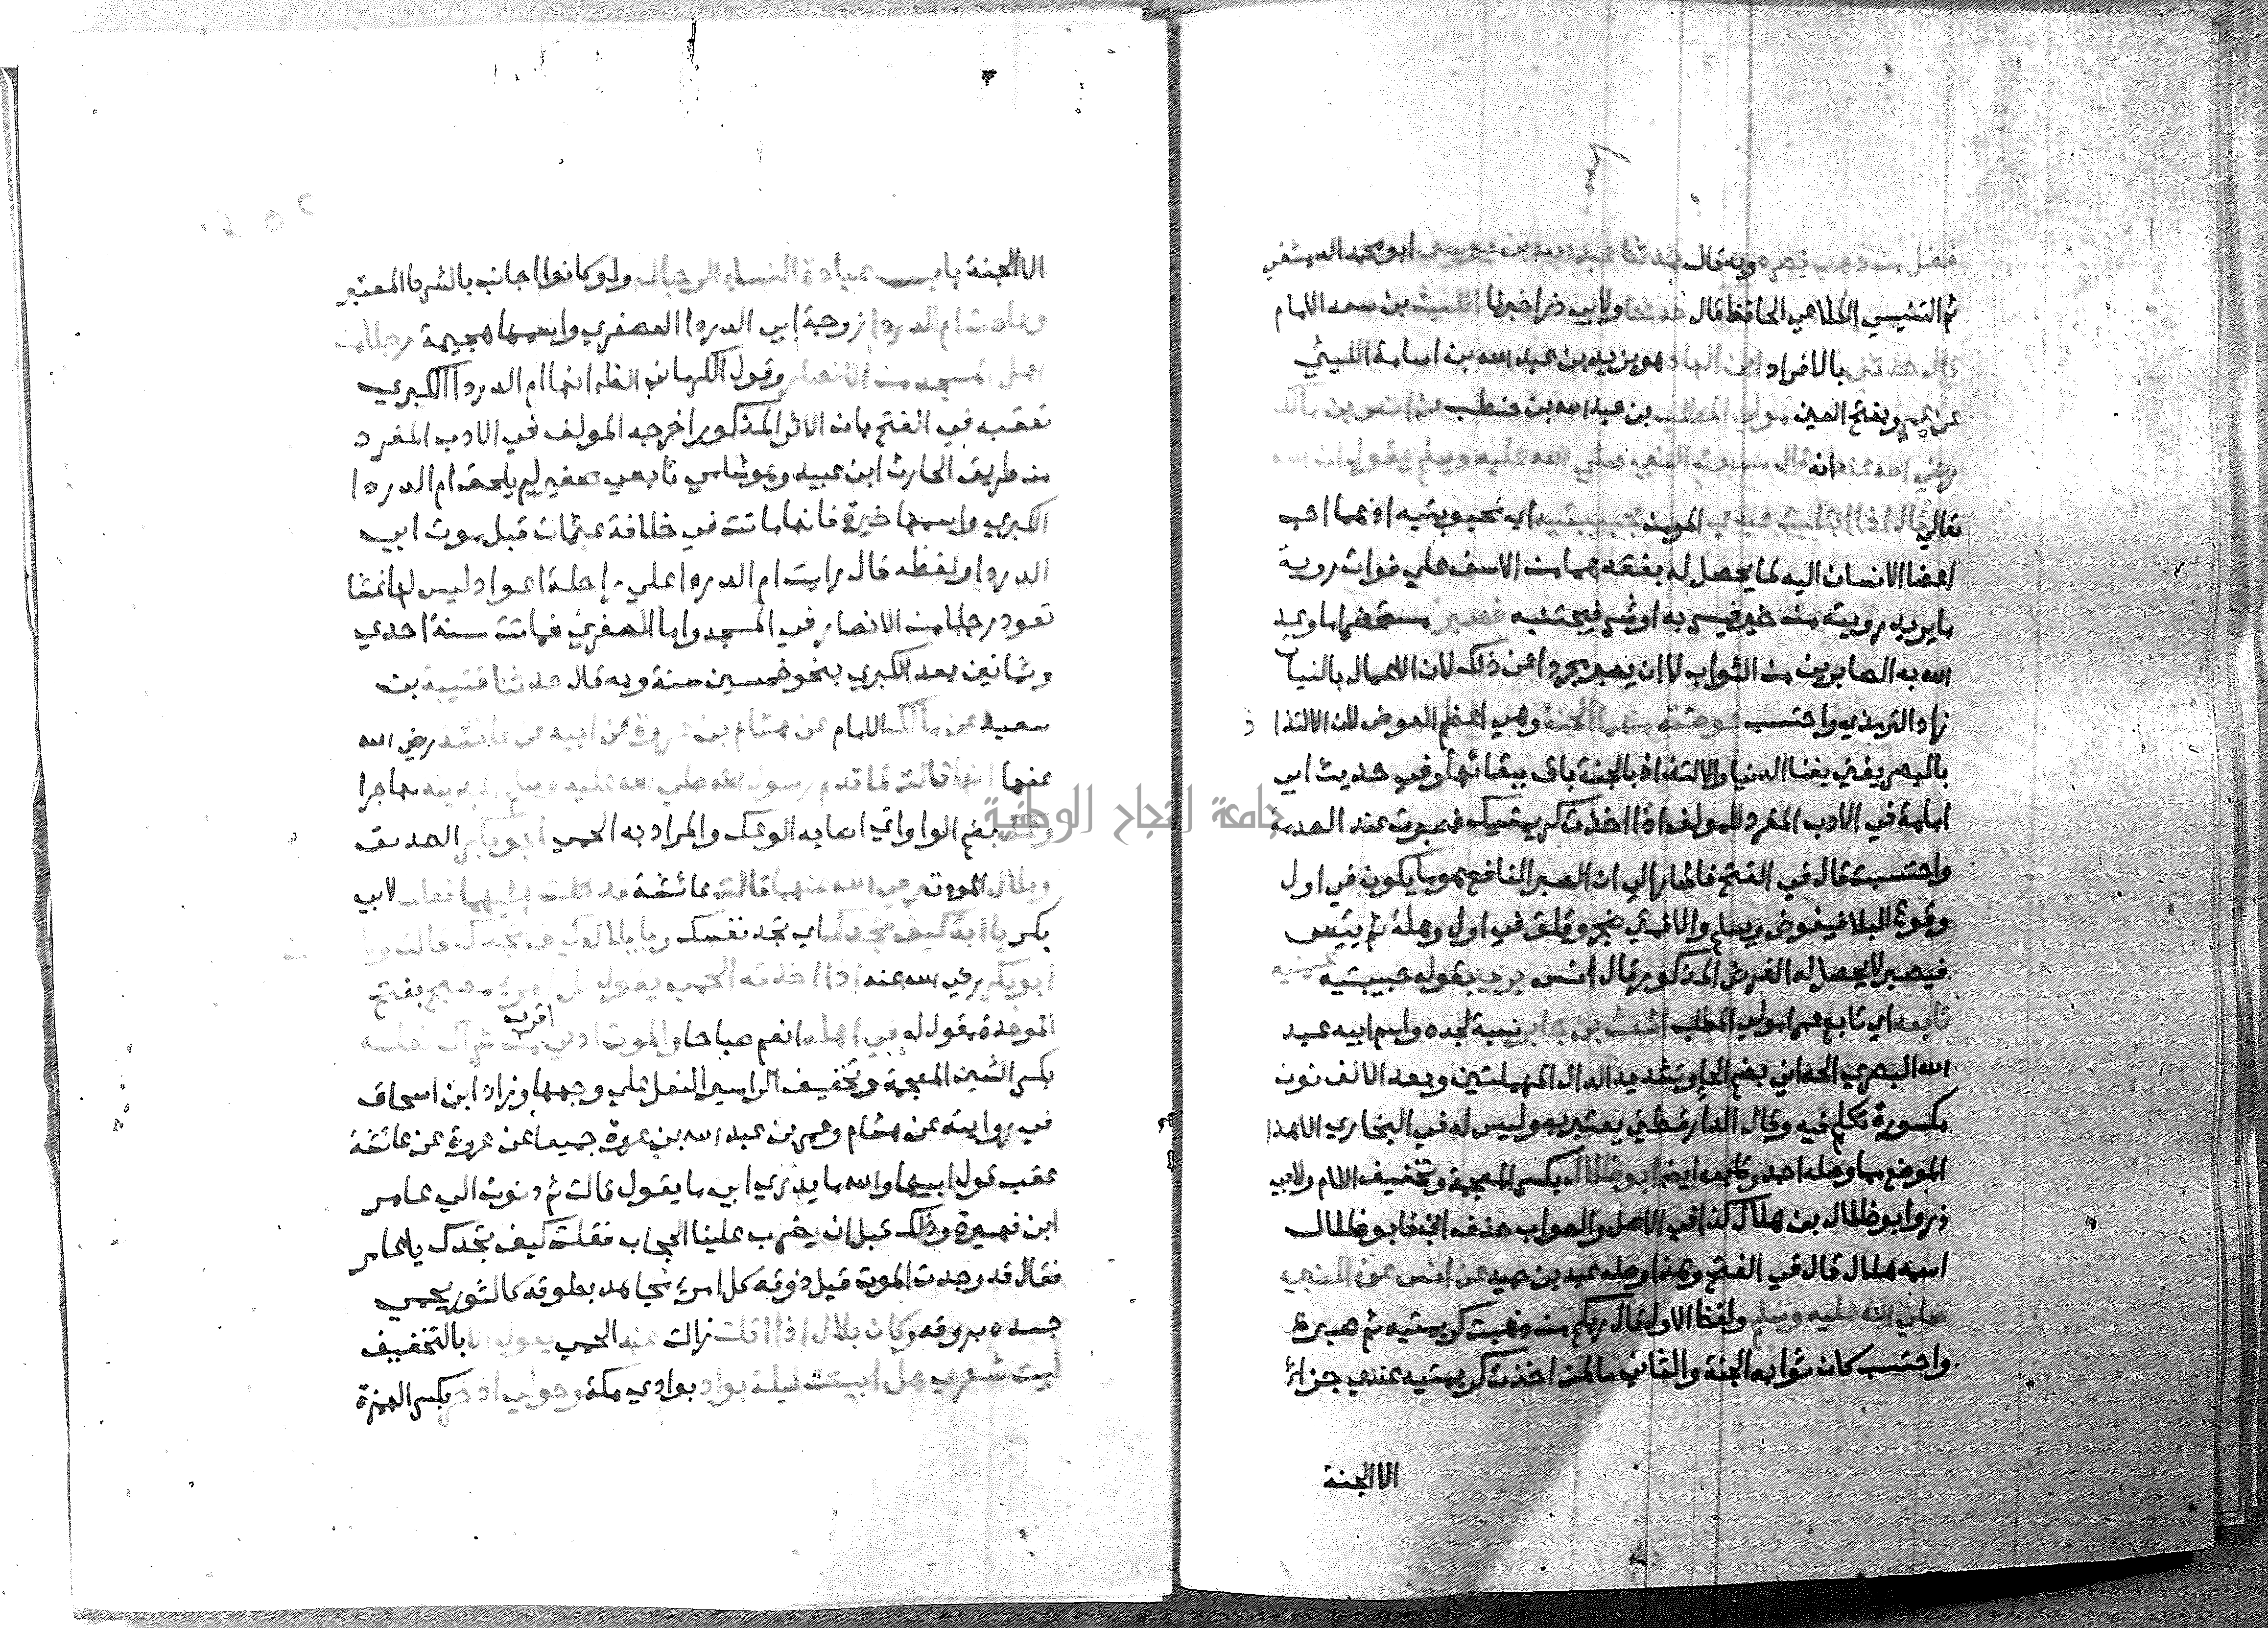 فضل من ذهب بصره وبه قال حدثنا عبد الله بن يوسف ابو محمد الدمشقي
ثم التنيسي الكلاعي الحافظ قال حدثنا ولابي ذر اخبرنا الليث بن سعد الامام
قال حدثني بالافراد ابن الهاد هو يزيد بن عبد الله بن اسامة الليثي
عن عمرو بفتح العين مولى المطلب بن عبد الله بن حنطب عن انس بن مالك
رضي الله عنه انه قال سمعت النبي صلي الله عليه وسلم يقول ان الله
تعالي قال اذا ابتليت عبدي المومن بحبيبتيه اي محبوبتيه اذ هما احب
اعضا الانسان اليه لما يحصل له بفقدهما من الاسف علي فوات روية
ما يريد رويته من خير فيسر به او شر فيجتنبه فصبر مستحضرا ما وعد
الله به الصابرين من الثواب لا ان يصبر مجردا عن ذلك لان الاعمال بالنيات
زاد الترمذي واحتسب عوضته منهما الجنة وهي اعظم العوض لان الالتذاذ
بالبصر يفني بفنا الدنيا والالتذاذ بالجنة باق ببقائها وفي حديث ابي
امامة في الادب المفرد للمولف اذا اخذت كريمتيك فصبرت عند الصدمة
واحتسبت قال في الفتح فاشار الي ان الصبر النافع هو ما يكون في اول
وقوع البلا فيفوض ويسلم والا فمتي ضجر وقلق في اول وهلة ثم يئس
فيصبر لا يحصل له الغرض المذكور قال انس يريد بقوله حبيبتيه عينيه
تابعه اي تابع عمرا مولي المطلب اشعث بن جابر نسبة لجده واسم ابيه عبد
الله البصري الحداني بضم الحا وتشديد الدال المهملتين وبعد الالف نون
مكسورة تكلم فيه وقال الدارقطني يعتبر به وليس له في البخاري الا هذا
الموضع مما وصله احمد وتابعه ايضا ابو ظلال بكسر المعجمة وتخفيف اللام ولابي
ذر وابو ظلال بن هلال كذا في الاصل والصواب حذف ابن فابو ظلال
اسمه هلال قال في الفتح وهذا وصله عبد بن حميد عن انس عن النبي
صلي الله عليه وسلم ولفظ الاول قال ربكم من ذهبت كريمتيه ثم صبر
واحتسب كان ثوابه الجنة والثاني ما لمن اخذت كريمتيه عندي جزاء
الا الجنة
الا الجنة باب عيادة النساء الرجال ولو كانوا اجانب بالشرط المعتبر
وعادت ام الدردا زوجة ابي الدردا الصغري واسمها هجيمة رجلا من
اهل المسجد من الانصار وقول الكرماني الظاهر انها ام الدردا الكبري
تعقبه في الفتح بان الاثر المذكور اخرجه المولف في الادب المفرد
من طريق الحارث ابن عبيد وهو شامي تابعي صغير لم يلحق ام الدردا
الكبري واسمها خيرة فانها ماتت في خلافة عثمان قبل موت ابي
الدردا ولفظه قال رايت ام الدردا علي راحلة اعواد ليس لها غشا
تعود رجلا من الانصار في المسجد واما الصغري فماتت سنة احدي
وثمانين بعد الكبري بنحو خمسين سنة وبه قال حدثنا قتيبة بن
سعيد عن مالك الامام عن هشام بن عروة عن ابيه عن عائشة رضي الله
عنها انها قالت لما قدم رسول الله صلي الله عليه وسلم المدينة مهاجرا
وعك بضم الواو اي اصابه الوعك والمراد به الحمي ابو بكر الصديق
وبلال الموذن رضي الله عنهما قالت عائشة فدخلت عليهما فقلت لابي
بكر يا ابة كيف تجدك اي تجد نفسك ويا بلال كيف تجدك قالت وكان
ابو بكر رضي الله عنه اذا اخذته الحمي يقول كل امرئ مصبح بفتح
الموحدة مقول له في اهله انعم صباحا والموت ادني اقرب من شراك نعله
بكسر الشين المعجمة وتخفيف الراسير النعل علي وجهها وزاد ابن اسحاق
في روايته عن هشام وعمر بن عبد الله بن عروة جميعا عن عروة عن عائشة
عقب قول ابيها والله ما يدري ابي ما يقول قالت ثم دنوت الي عامر
ابن فهيرة وذلك قبل ان يضرب علينا الحجاب فقلت كيف تجدك يا عامر
فقال قد وجدت الموت قبل ذوقه كل امرئ مجاهد بطوقه كالثور يحمي
جسده بروقه وكان بلال اذا اقلعت زالت عنه الحمي يقول الا بالتخفيف
ليت شعري هل ابيتن ليلة بواد بوادي مكة وحولي اذخر بكسر الهمزة
جامعة النجاح الوطنية